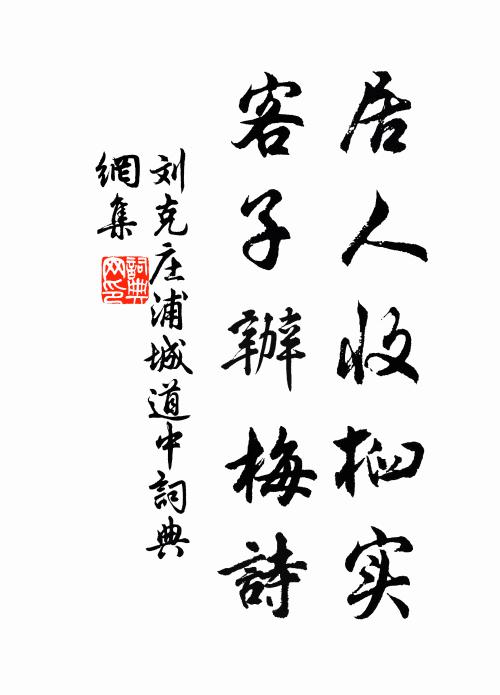 居人收桕实
客子辦梅詩
刘克庄浦城道中詞典
網集
詞典
网印